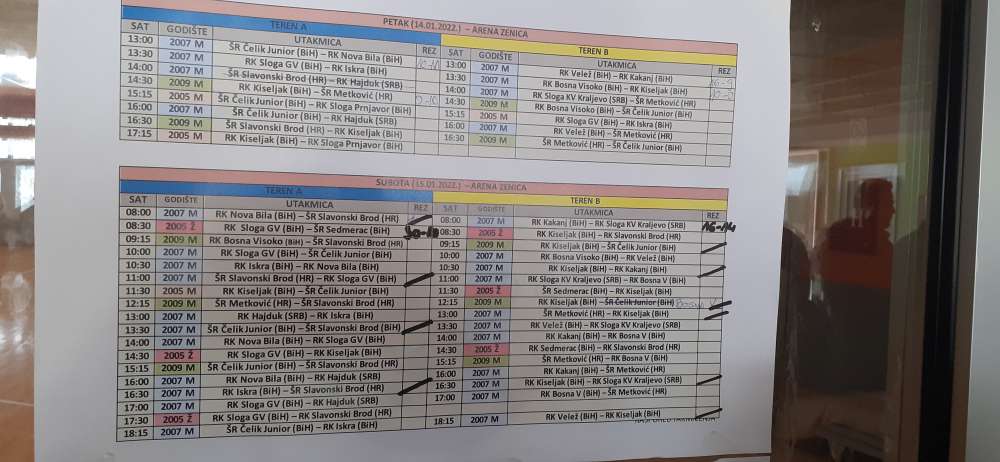 PETAK (14.01.2022.) – ARENA ZENICA
TEREN A
SAT GODIŠTE UTAKMICA REZ
13:00 2007 M ŠR Čelik Junior (BiH) – RK Nova Bila (BiH)
13:30 2007 M RK Sloga GV (BiH) – RK Iskra (BiH)
14:00 2007 M ŠR Slavonski Brod (HR) – RK Hajduk (SRB)
14:30 2009 M RK Kiseljak (BiH) – ŠR Metković (HR)
15:15 2005 M ŠR Čelik Junior (BiH) – RK Sloga Prnjavor (BiH)
16:00 2007 M ŠR Čelik Junior (BiH) – RK Hajduk (SRB)
16:30 2009 M ŠR Slavonski Brod (HR) – RK Kiseljak (BiH)
17:15 2005 M RK Kiseljak (BiH) – RK Sloga Prnjavor (BiH)
TEREN B
SAT GODIŠTE UTAKMICA REZ
13:00 2007 M RK Velež (BiH) – RK Kakanj (BiH)
13:30 2007 M RK Bosna Visoko (BiH) – RK Kiseljak (BiH)
14:00 2007 M RK Sloga KV Kraljevo (SRB) – ŠR Metković (HR)
14:30 2009 M RK Bosna Visoko (BiH) – ŠR Čelik Junior (BiH)
15:15 2005 M RK Sloga GV (BiH) – RK Iskra (BiH)
16:00 2007 M RK Velež (BiH) – ŠR Metković (HR)
16:30 2009 M ŠR Metković (HR) – ŠR Čelik Junior (BiH)
SUBOTA (15.01.2022.) – ARENA ZENICA
TEREN A
SAT GODIŠTE UTAKMICA REZ
08:00 2007 M RK Nova Bila (BiH) – ŠR Slavonski Brod (HR)
08:30 2005 Ž RK Sloga GV (BiH) – ŠR Sedmerac (BiH)
09:15 2009 M RK Bosna Visoko (BiH) – ŠR Slavonski Brod (HR)
10:00 2007 M RK Sloga GV (BiH) – ŠR Čelik Junior (BiH)
10:30 2007 M RK Iskra (BiH) – RK Nova Bila (BiH)
11:00 2007 M ŠR Slavonski Brod (HR) – RK Sloga GV (BiH)
11:30 2005 M RK Kiseljak (BiH) – ŠR Čelik Junior (BiH)
12:15 2009 M ŠR Metković (HR) – ŠR Slavonski Brod (HR)
13:00 2007 M RK Hajduk (SRB) – RK Iskra (BiH)
13:30 2007 M ŠR Čelik Junior (BiH) – ŠR Slavonski Brod (HR)
14:00 2007 M RK Nova Bila (BiH) – RK Sloga GV (BiH)
14:30 2005 Ž RK Sloga GV (BiH) – RK Kiseljak (BiH)
15:15 2009 M ŠR Čelik Junior (BiH) – ŠR Slavonski Brod (HR)
16:00 2007 M RK Nova Bila (BiH) – RK Hajduk (SRB)
16:30 2007 M RK Iskra (BiH) – ŠR Slavonski Brod (HR)
17:00 2007 M RK Sloga GV (BiH) – RK Hajduk (SRB)
17:30 2005 Ž RK Sloga GV (BiH) – RK Slavonski Brod (HR)
18:15 2007 M ŠR Čelik Junior (BiH) – RK Iskra (BiH)
TEREN B
SAT GODIŠTE UTAKMICA REZ
08:00 2007 M RK Kakanj (BiH) – RK Sloga KV Kraljevo (SRB) 16-14
08:30 2005 Ž RK Kiseljak (BiH) – RK Slavonski Brod (HR)
09:15 2009 M RK Kiseljak (BiH) – ŠR Čelik Junior (BiH)
10:00 2007 M RK Bosna Visoko (BiH) – RK Velež (BiH)
10:30 2007 M RK Kiseljak (BiH) – RK Kakanj (BiH)
11:00 2007 M RK Sloga KV Kraljevo (SRB) – RK Bosna V (BiH)
11:30 2005 Ž ŠR Sedmerac (BiH) – RK Kiseljak (BiH)
12:15 2009 M RK Kiseljak (BiH) – ŠR Čelik Junior (BiH)
13:00 2007 M ŠR Metković (HR) – RK Kiseljak (BiH)
13:30 2007 M RK Velež (BiH) – RK Sloga KV Kraljevo (SRB)
14:00 2007 M RK Kakanj (BiH) – RK Bosna V (BiH)
14:30 2005 Ž RK Sedmerac (BiH) – RK Slavonski Brod (HR)
15:15 2009 M ŠR Metković (HR) – RK Bosna V (BiH)
16:00 2007 M RK Kakanj (BiH) – ŠR Metković (HR)
16:30 2007 M RK Kiseljak (BiH) – RK Sloga KV Kraljevo (SRB)
17:00 2007 M RK Bosna V (BiH) – ŠR Metković (HR)
18:15 2007 M RK Velež (BiH) – RK Kiseljak (BiH)